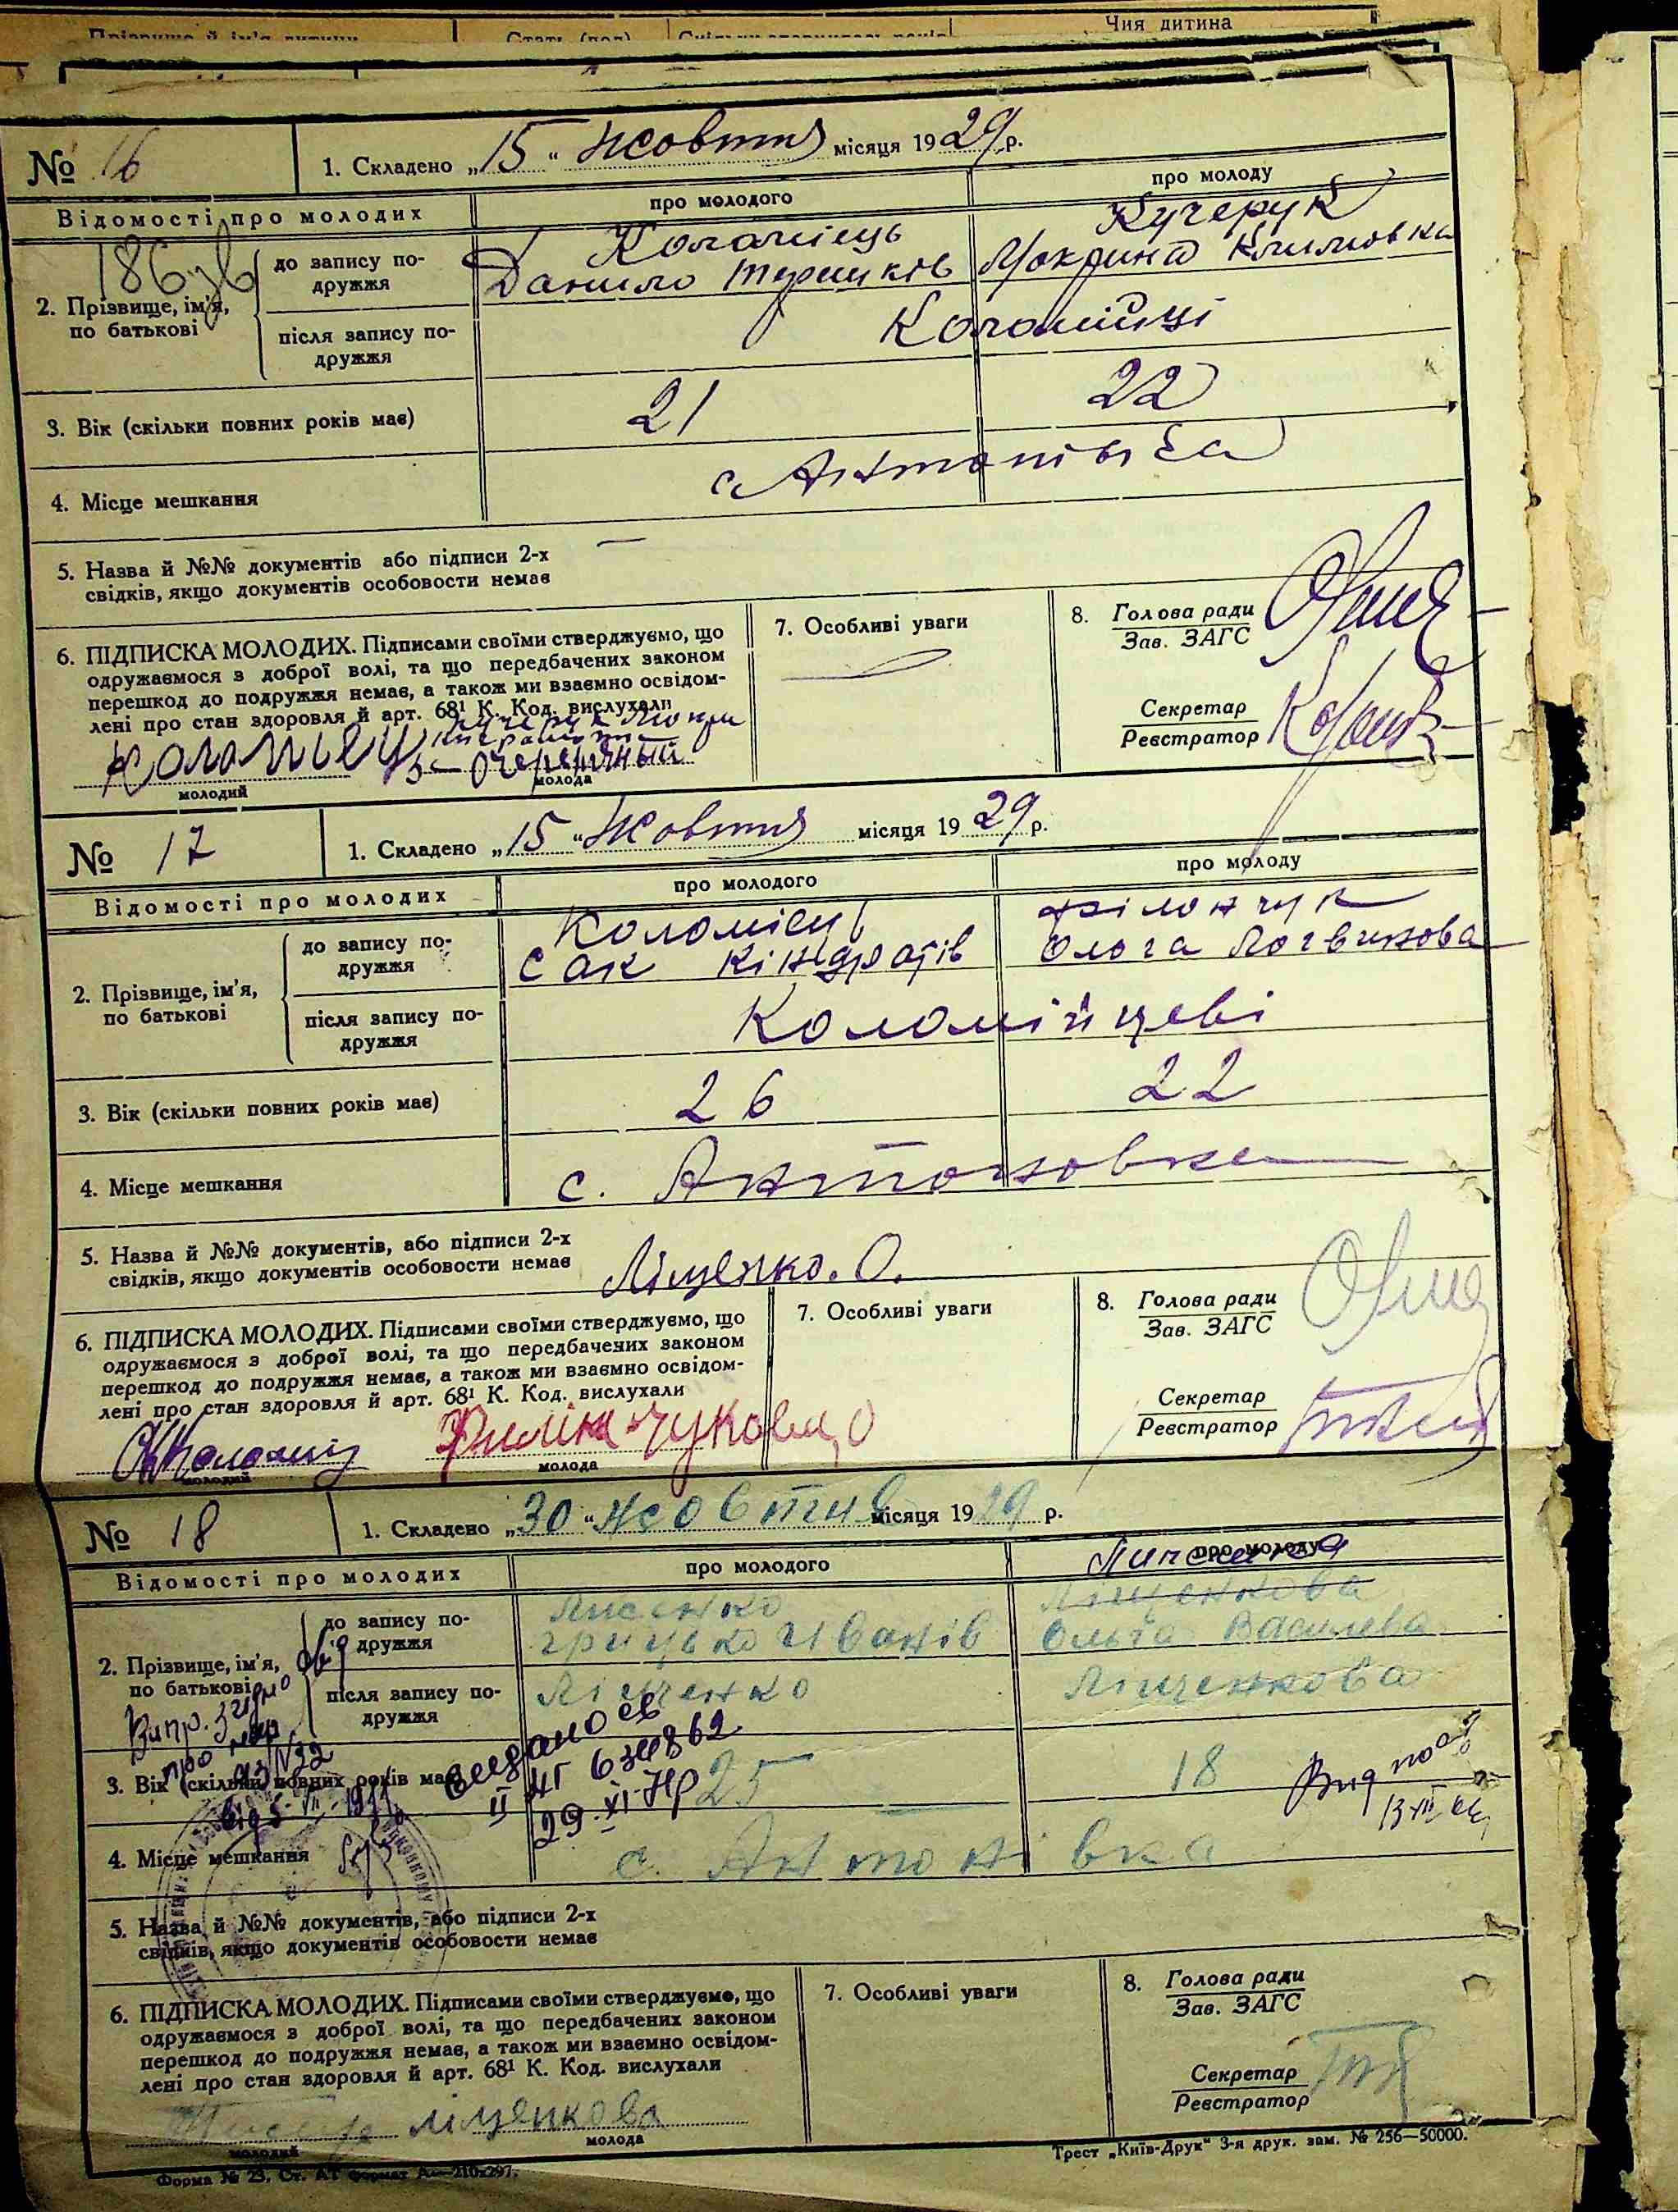 Чия дитина
№ 16
1. Складено „15“ жовтня місяця 1929 р.
Відомості про молодих
про молодого
про молоду
2. Прізвище, ім'я, по батькові
до запису подружжя
Данило
Кучерук
Мокрина Климовна
після запису подружжя
Коломійці
3. Вік (скільки повних років має)
21
22
4. Місце мешкання
с. Антонівка
5. Назва й №№ документів або підписи 2-х
свідків, якщо документів особовости немає
—
6. ПІДПИСКА МОЛОДИХ. Підписами своїми стверджуємо, що
одружаємося з доброї волі, та що передбачених законом
перешкод до подружжя немає, а також ми взаємно освідом-
лені про стан здоровля й арт. 68¹ К. Код. вислухали
молодий
молода
7. Особливі уваги
8. Голова ради
Зав. ЗАГС
Секретар
Реєстратор
№ 17
1. Складено „15“ Жовтня місяця 1929 р.
Відомості про молодих
про молодого
про молоду
2. Прізвище, ім'я, по батькові
до запису подружжя
Коломієць
Сак Кіндратів
Філончук
Ольга Логвинова
після запису подружжя
Коломійцеві
3. Вік (скільки повних років має)
26
22
4. Місце мешкання
с. Антоновка
5. Назва й №№ документів, або підписи 2-х
свідків, якщо документів особовости немає
Ліщенко. О.
6. ПІДПИСКА МОЛОДИХ. Підписами своїми стверджуємо, що
одружаємося з доброї волі, та що передбачених законом
перешкод до подружжя немає, а також ми взаємно освідом-
лені про стан здоровля й арт. 68¹ К. Код. вислухали
молодий
молода
7. Особливі уваги
8. Голова ради
Зав. ЗАГС
Секретар
Реєстратор
№ 18
1. Складено „30“ жовтня місяця 1929 р.
Відомості про молодих
про молодого
про молоду
2. Прізвище, ім'я, по батькові
до запису подружжя
Лисенко
Грицько Іванів
Ліщенкова
Ольга Василева
після запису подружжя
Ліщенко
Ліщенкова
3. Вік (скільки повних років має)
25
18
4. Місце мешкання
с. Антонівка
5. Назва й №№ документів, або підписи 2-х
свідків, якщо документів особовости немає
6. ПІДПИСКА МОЛОДИХ. Підписами своїми стверджуємо, що
одружаємося з доброї волі, та що передбачених законом
перешкод до подружжя немає, а також ми взаємно освідом-
лені про стан здоровля й арт. 68¹ К. Код. вислухали
Ліщенкова
молодий
молода
7. Особливі уваги
8. Голова ради
Зав. ЗАГС
Секретар
Реєстратор
Форма № 23. Ст. АТ формат А₄—210х297.
Трест „Київ-Друк“ 3-я друк. зам. № 256—50000.